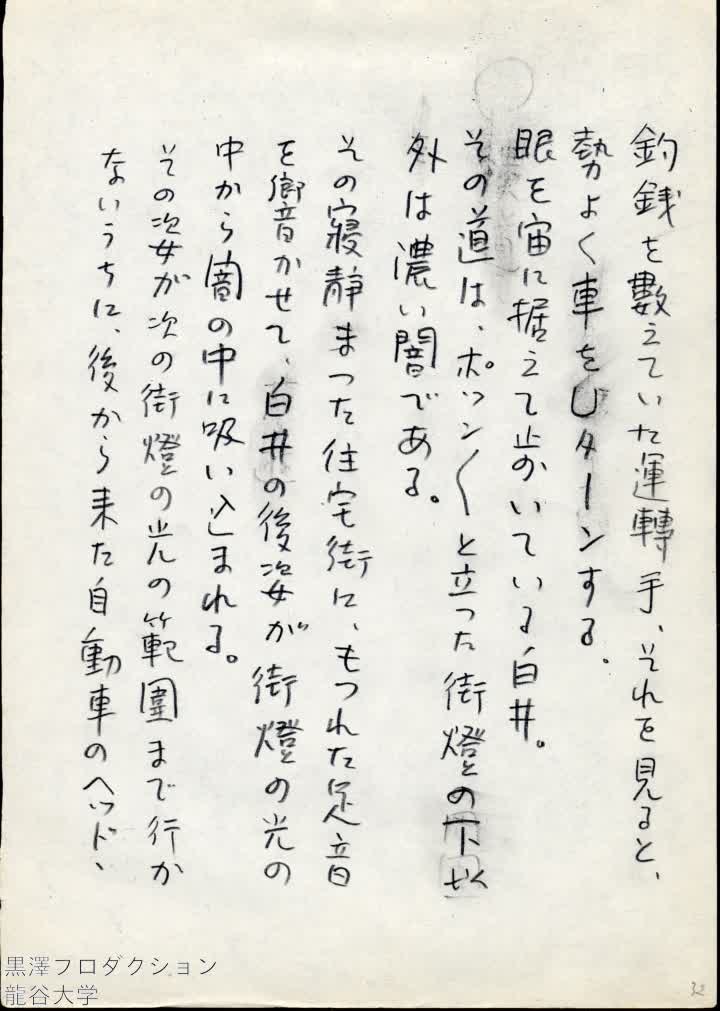 釣銭を數えていた運轉手、それを見ると、
勢よく車をUターンする。
眼を宙に据えて歩いている白井。
その道は、ポツン〱と立った街燈の下以
外は濃い闇である。
その寝静まった住宅街に、もつれた足音
を響かせて、白井の後姿が街燈の光の
中から闇の中に吸い込まれる。
その姿が次の街燈の光の範圍まで行か
ないうちに、後から来た自動車のヘッド、
黒澤プロダクション
龍谷大学
32